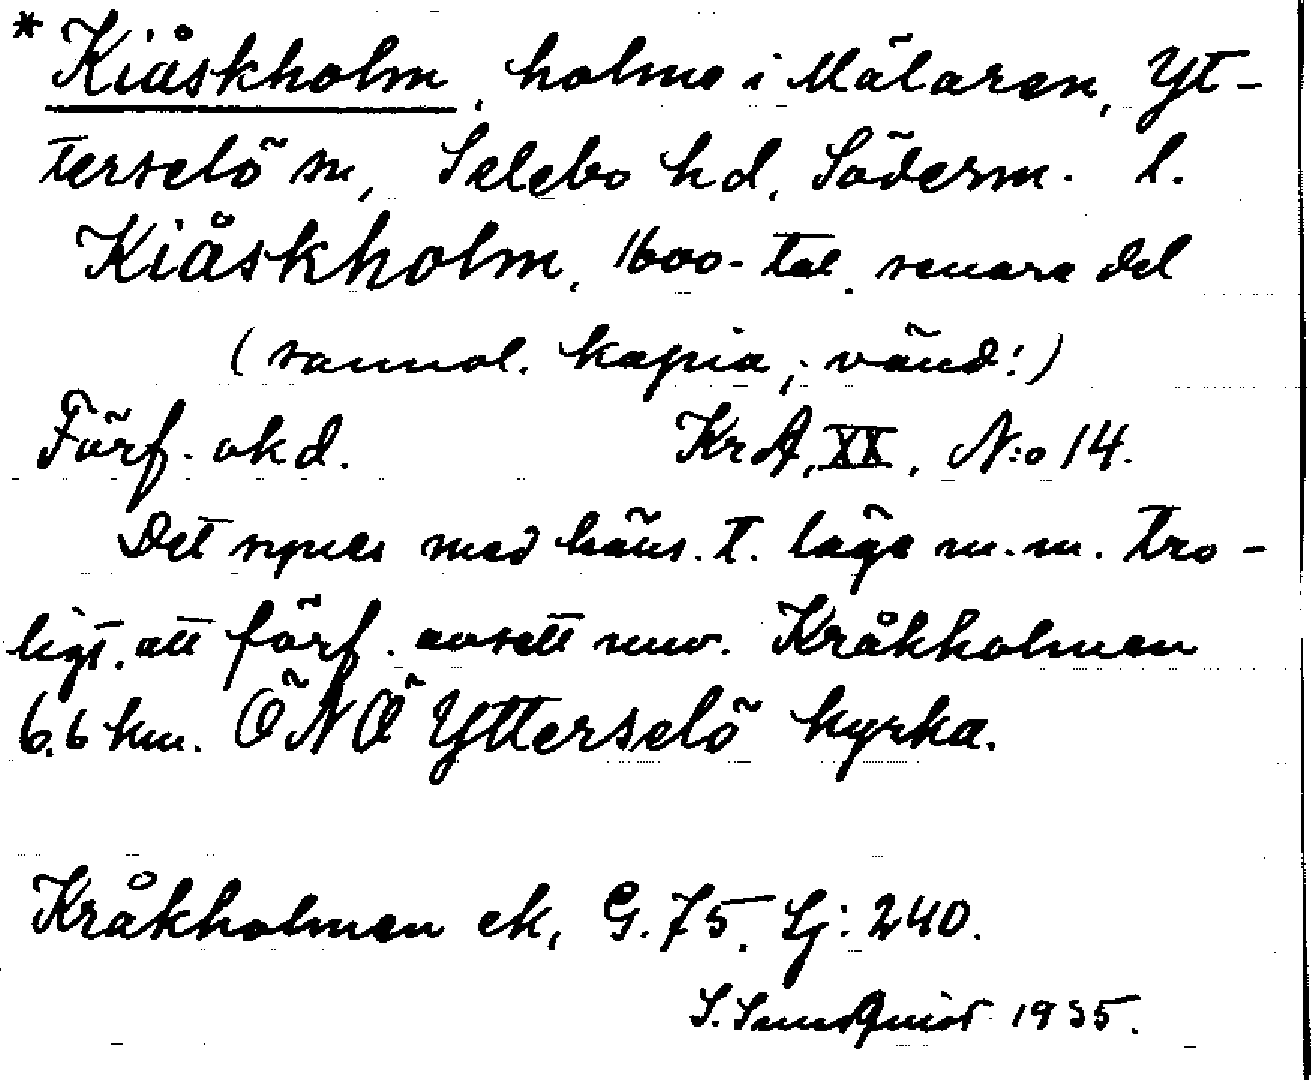 * Kiåskholm, holme i Mälaren, Yt-
terselö sn, Selebo hd, Söderm. l.
Kiåskholm, 1600-tal. senare del
(sannol. kopia, vänd!)
Förf. okd. KrA, XX, N:o 14.
Det synes med häns. t. läge m.m. tro-
ligt, att förf. avsett nuv. Kråkholmen
6,6 km. ÖNÖ Ytterselö kyrka.
Kråkholmen ek, G. 75. Lj: 240.
S. Sundquist 1935.